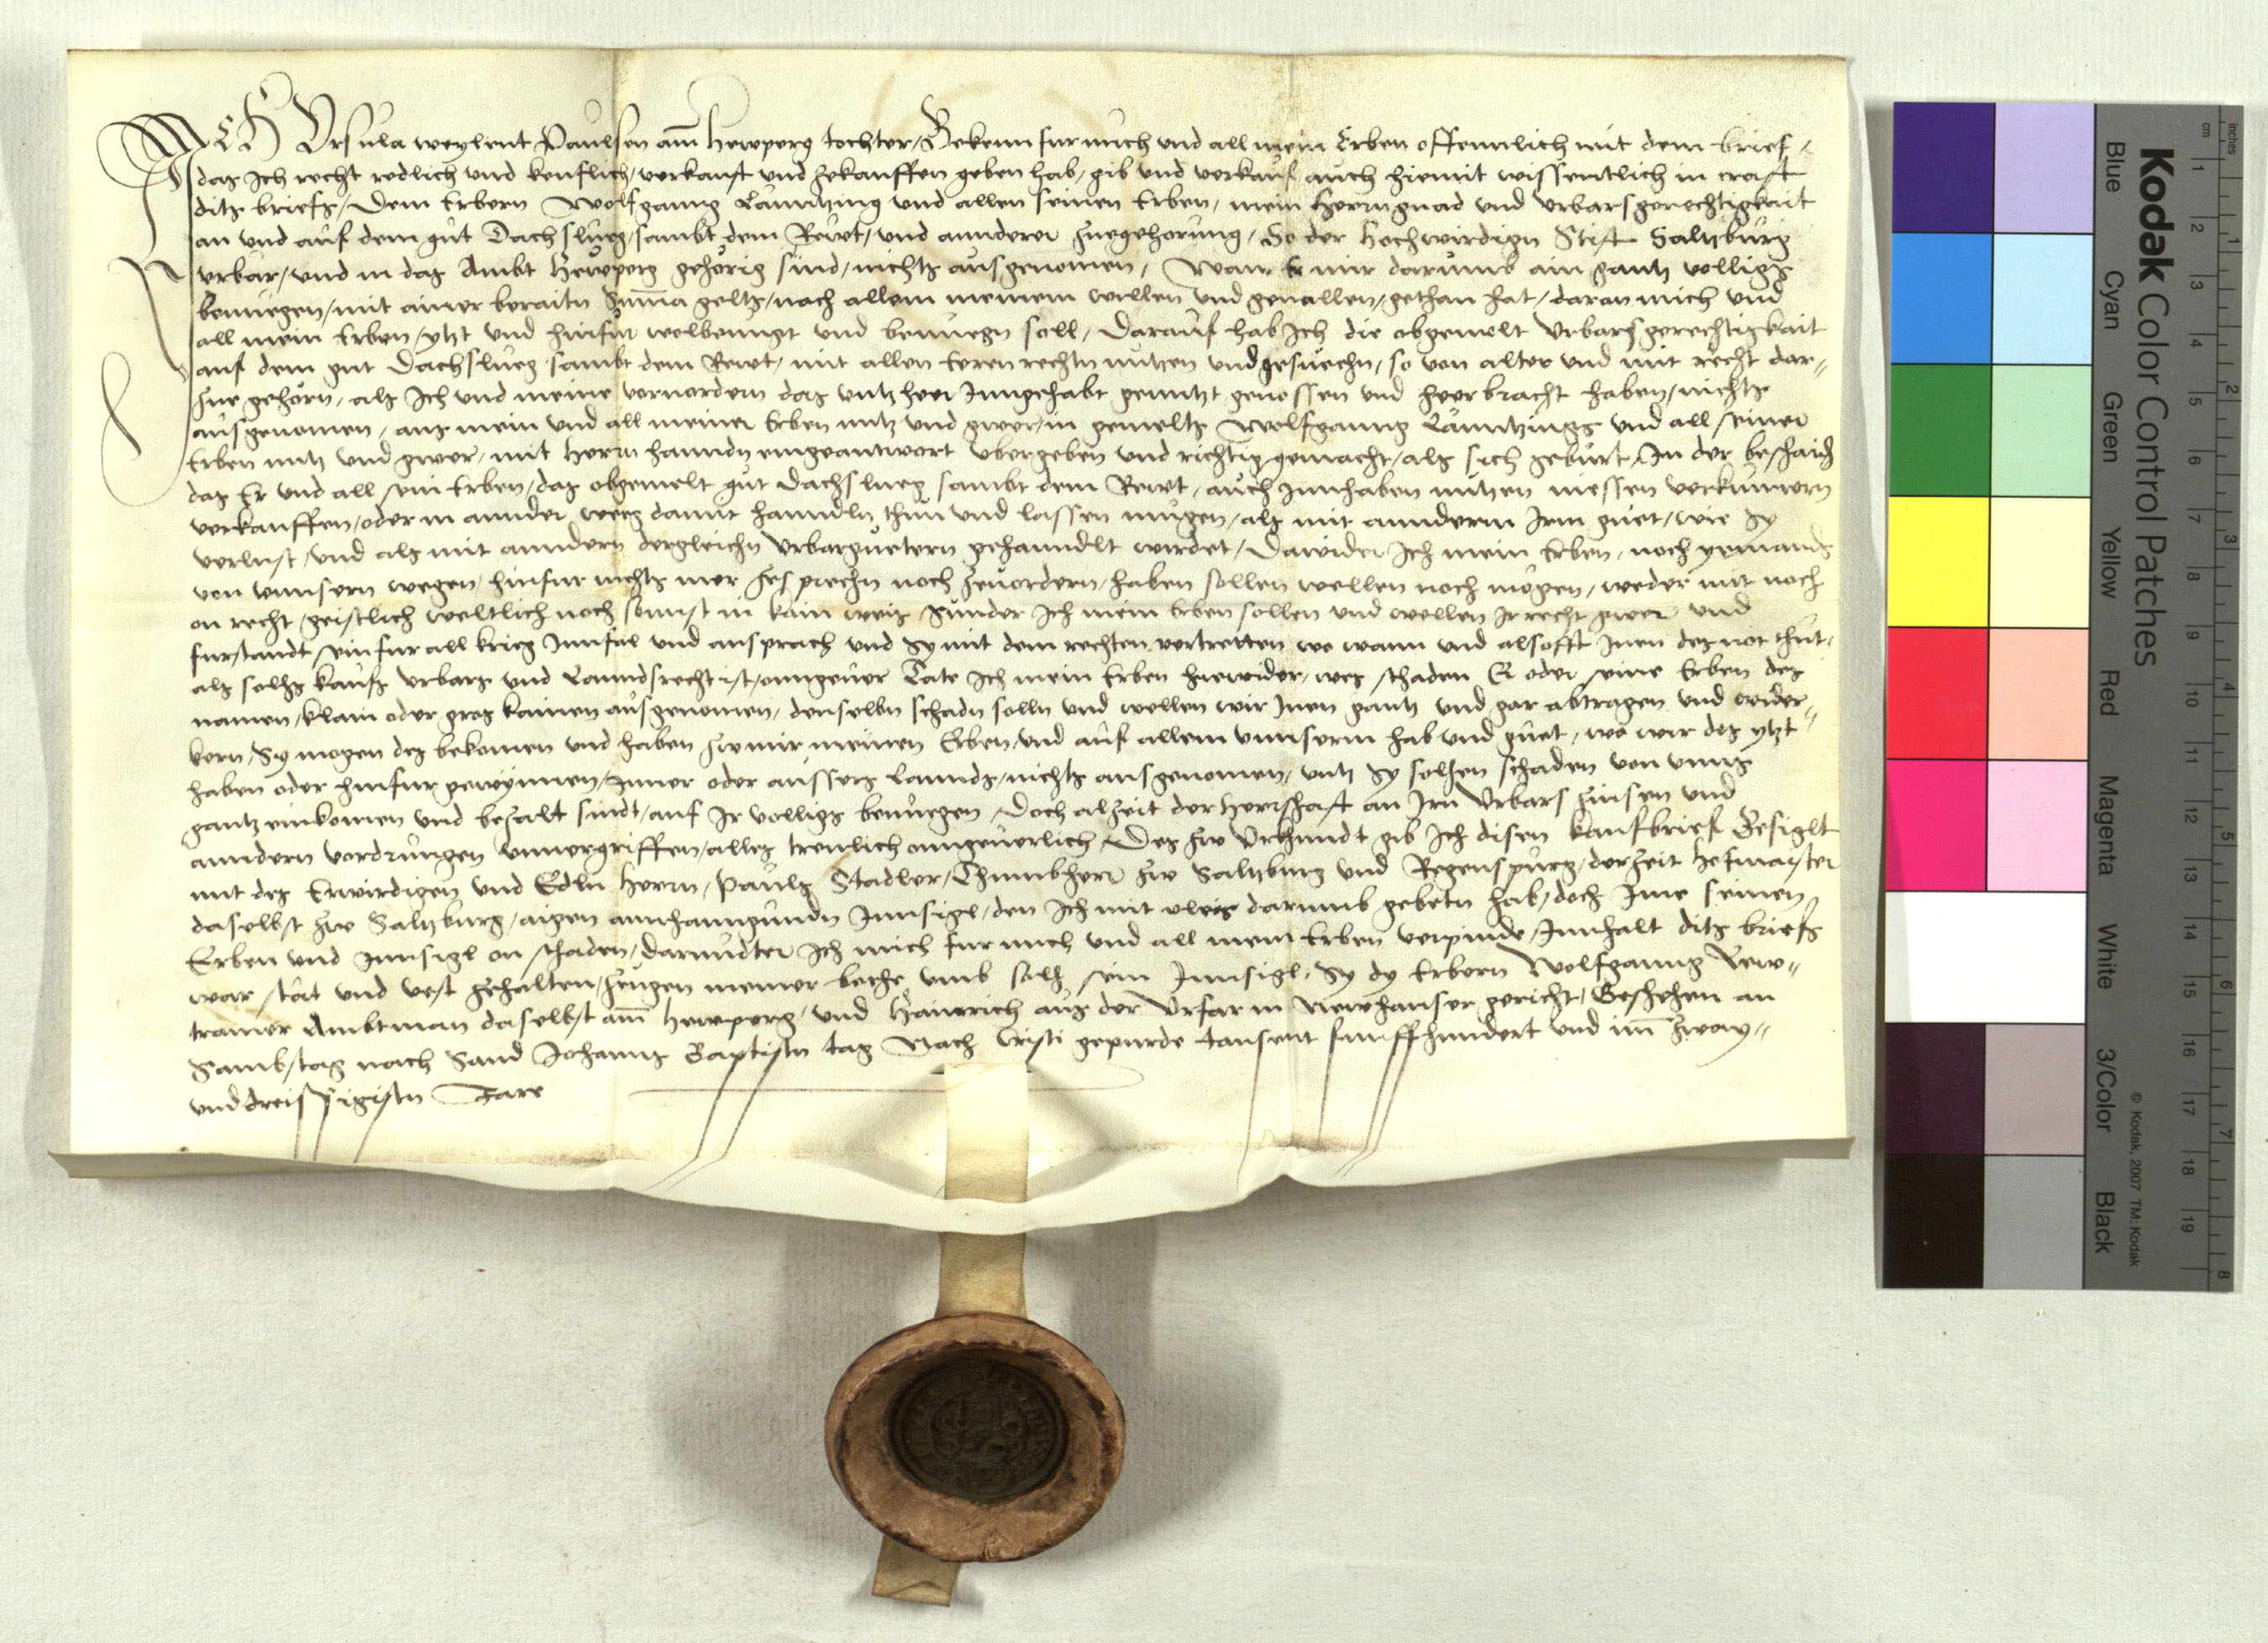 Ich Ursula weylent Paulsen am̄ Hewperg tochter / Bekenn fur mich und all mein Erben offennlich mit dem brief /
das Ich recht redlich und keuflich / verkauft und zekauffen geben hab / gib und verkauf auch hiemit wissentlich in craft
ditz briefs / Dem Erbern Wolfganng Länntzing und allen seinen Erben / mein Herrngnad und Urbarsgerechtigkait
an und auf dem gut Dachslueg / sambt dem Rewt / und annderer zuegehorung / So der Hochwirdign Stift Saltzburg
Urbar / und in das Ambt Hewperg gehörig sind / nichts ausgenomen / Wann Er mir darumb ain gantz volligs
benuegen / mit ainer beraitn Sum̄a geltz / nach allem meinem willen und geuallen / gethan hat / daran mich und
all mein Erben / yetzt und hinfur wolbenugt und benuegn soll / Darauf hab Ich die obgemelt Urbarsgerechtigkait
auf dem gut Dachslueg sambt dem Rewt / mit allen Eeren rechtn nutzen und gesuechn / so von alter und mit recht dar=
zue gehorn / als Ich und meine vorvordern das untz heer Inngehabt genutzt genossen und heerbracht haben / nichts
ausgenomen / aus mein und all meiner Erben nutz und gwer / in gemelts Wolfganng Länntzings und all seiner
Erben nutz und gwer / mit Herrn hanndn eingeantwort ubergeben und richtig gemacht / als sich geburt / In der beschaid
das Er und all sein Erben / das obgemelt gut Dachslueg sambt dem Rewt / auch Innhaben nutzen niessen verkumern
verkauffen / oder in annder weeg damit hanndln thun und lassen mugen / als mit annderm Irm guet / wie Sy
verlust / und als mit anndern dergleichn Urbarguetern gehanndlt wirdet / Dawider Ich mein Erben / noch yemands
von unnsern wegen / hinfur nichts mer zesprechn noch zeuordern / haben sollen wellen noch mögen / weder mit noch
on recht / geistlich weltlich noch sonnst in kain weis / Sunder Ich mein Erben sollen und wellen Ir recht gwer und
furstandt sein fur all krieg Innfäl und ansprach und Sy mit dem rechten vertretten wo wann und alsofft Inen des not thut /
als solhs kaufs Urbars und Lanndsrecht ist / onngeuer Täte Ich mein Erben hiewider / wes schaden Er oder seine Erben des
namen / klain oder gros kainen ausgenomen / denselbn schadn solln und wellen wir Inen gantz und gar abtragen und wider=
kern / Sy mogen des bekomen und haben zw mir meinen Erben und auf allem unnserm hab und guet / wo wir des yetzt
haben oder hinfur gewynnen / Inner oder aussers Lannds / nichts ausgenomen / untz Sy solhen schaden von unns
gantz einkomen und bezalt sindt / auf Ir volligs benuegen / Doch alzeit der Herrschaft an Irn Urbars zinsen und
anndern vordrungen unnergriffen / alles treulich onngeuerlich / Des zw Urchundt gib Ich disen kaufbrief Besiglt
mit des Erwirdigen und Edln Herrn / Pauls Stadler / Thumbherr zw Saltzburg und Regenspurg / derzeit Hofmaister
daselbst zw Saltzburg / aigen anhanngundn Innsigl / den Ich mit vleis darumb gebetn hab / doch Ime seinen
Erben und Innsigl on schaden / Darundter Ich mich fur mich und all mein Erben verpinde / Innhalt ditz briefs
war stät und vest zehalten / zeugen meiner bethe umb solh sein Innsigl / Sy dy Erbern Wolfganng Lew=
tramer Ambtman daselbst am̄ Hewperg / und Hainrich aus der Urfar in Newhauser gericht / Geschehen an
Sambstag nach Sand Johanns Baptistn tag Nach Cristi gepurde tausent funffhundert und im̄ zway=
und dreissigistn Jare
Kodak Color Control Patches
Blue Cyan Green Yellow Red Magenta White 3/Color Black
© Kodak, 2007 TM: Kodak
cm 1 2 3 4 5 6 7 8 9 10 11 12 13 14 15 16 17 18 19
Inches 1 2 3 4 5 6 7 8